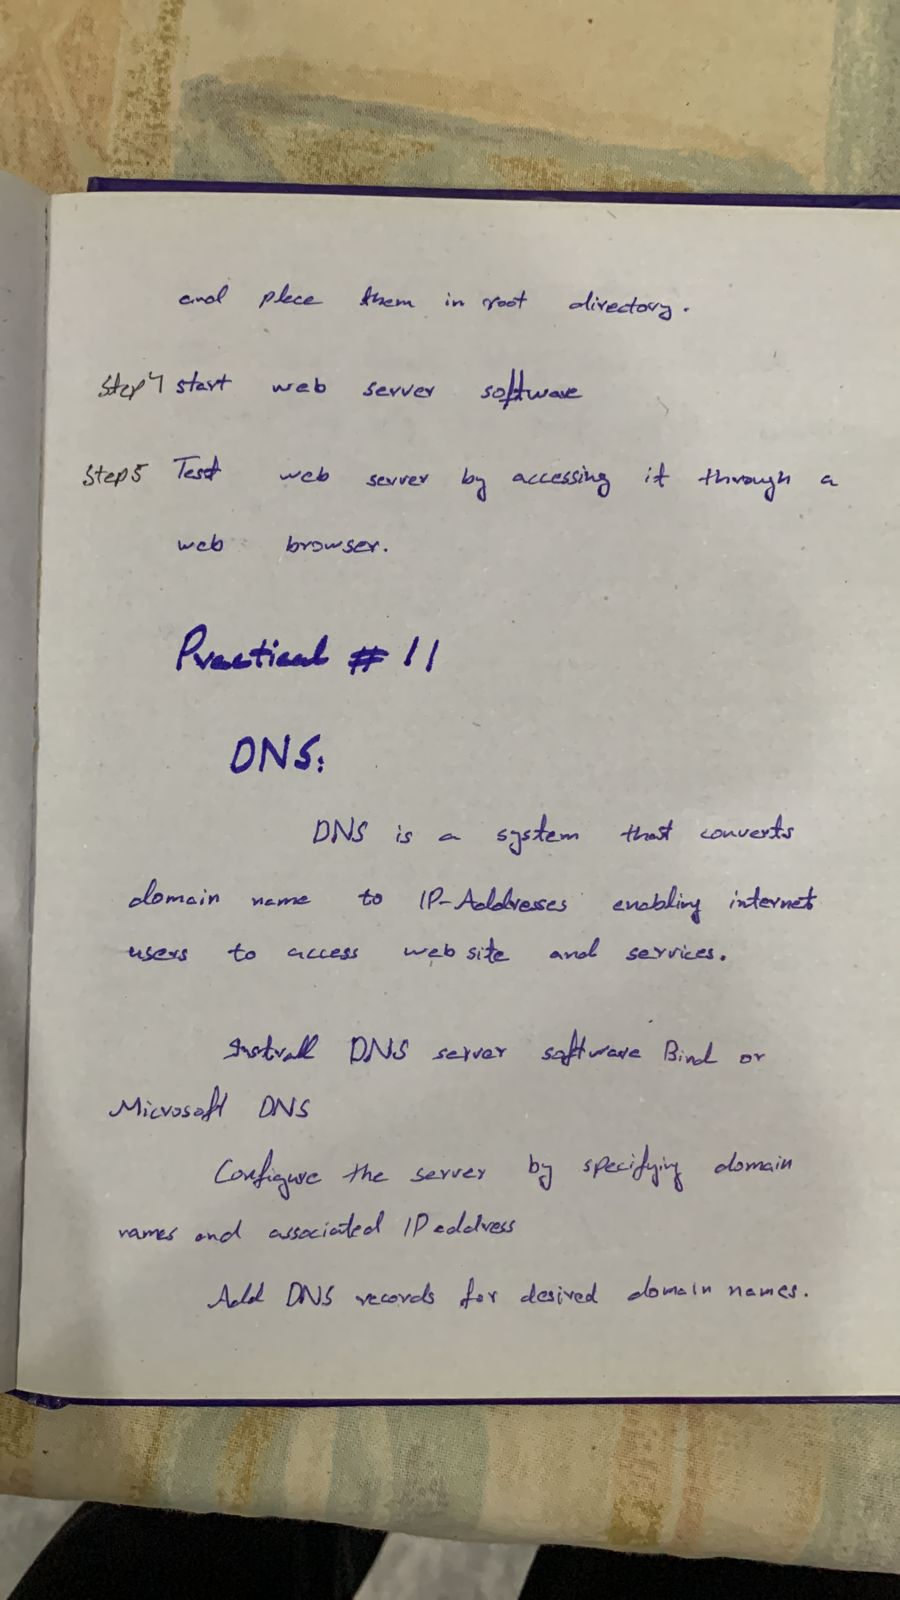 and place them in root directory.
Step 4 start web server software
Step 5 Test web server by accessing it through a
web browser.
Practical # 11
DNS:
DNS is a system that converts
domain name to IP-Addresses enabling internet
users to access web site and services.
Install DNS server software Bind or
Microsoft DNS
Configure the server by specifying domain
names and associated IP address
Add DNS records for desired domain names.